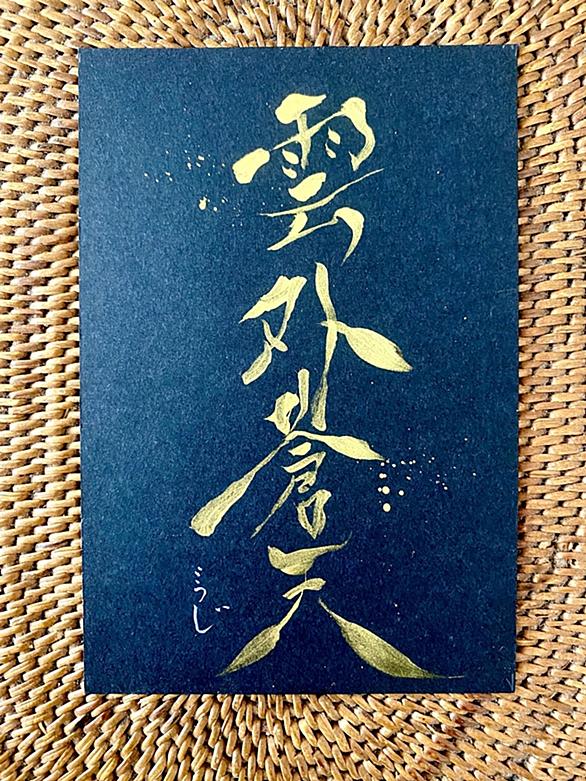 雲外蒼天
こうじ